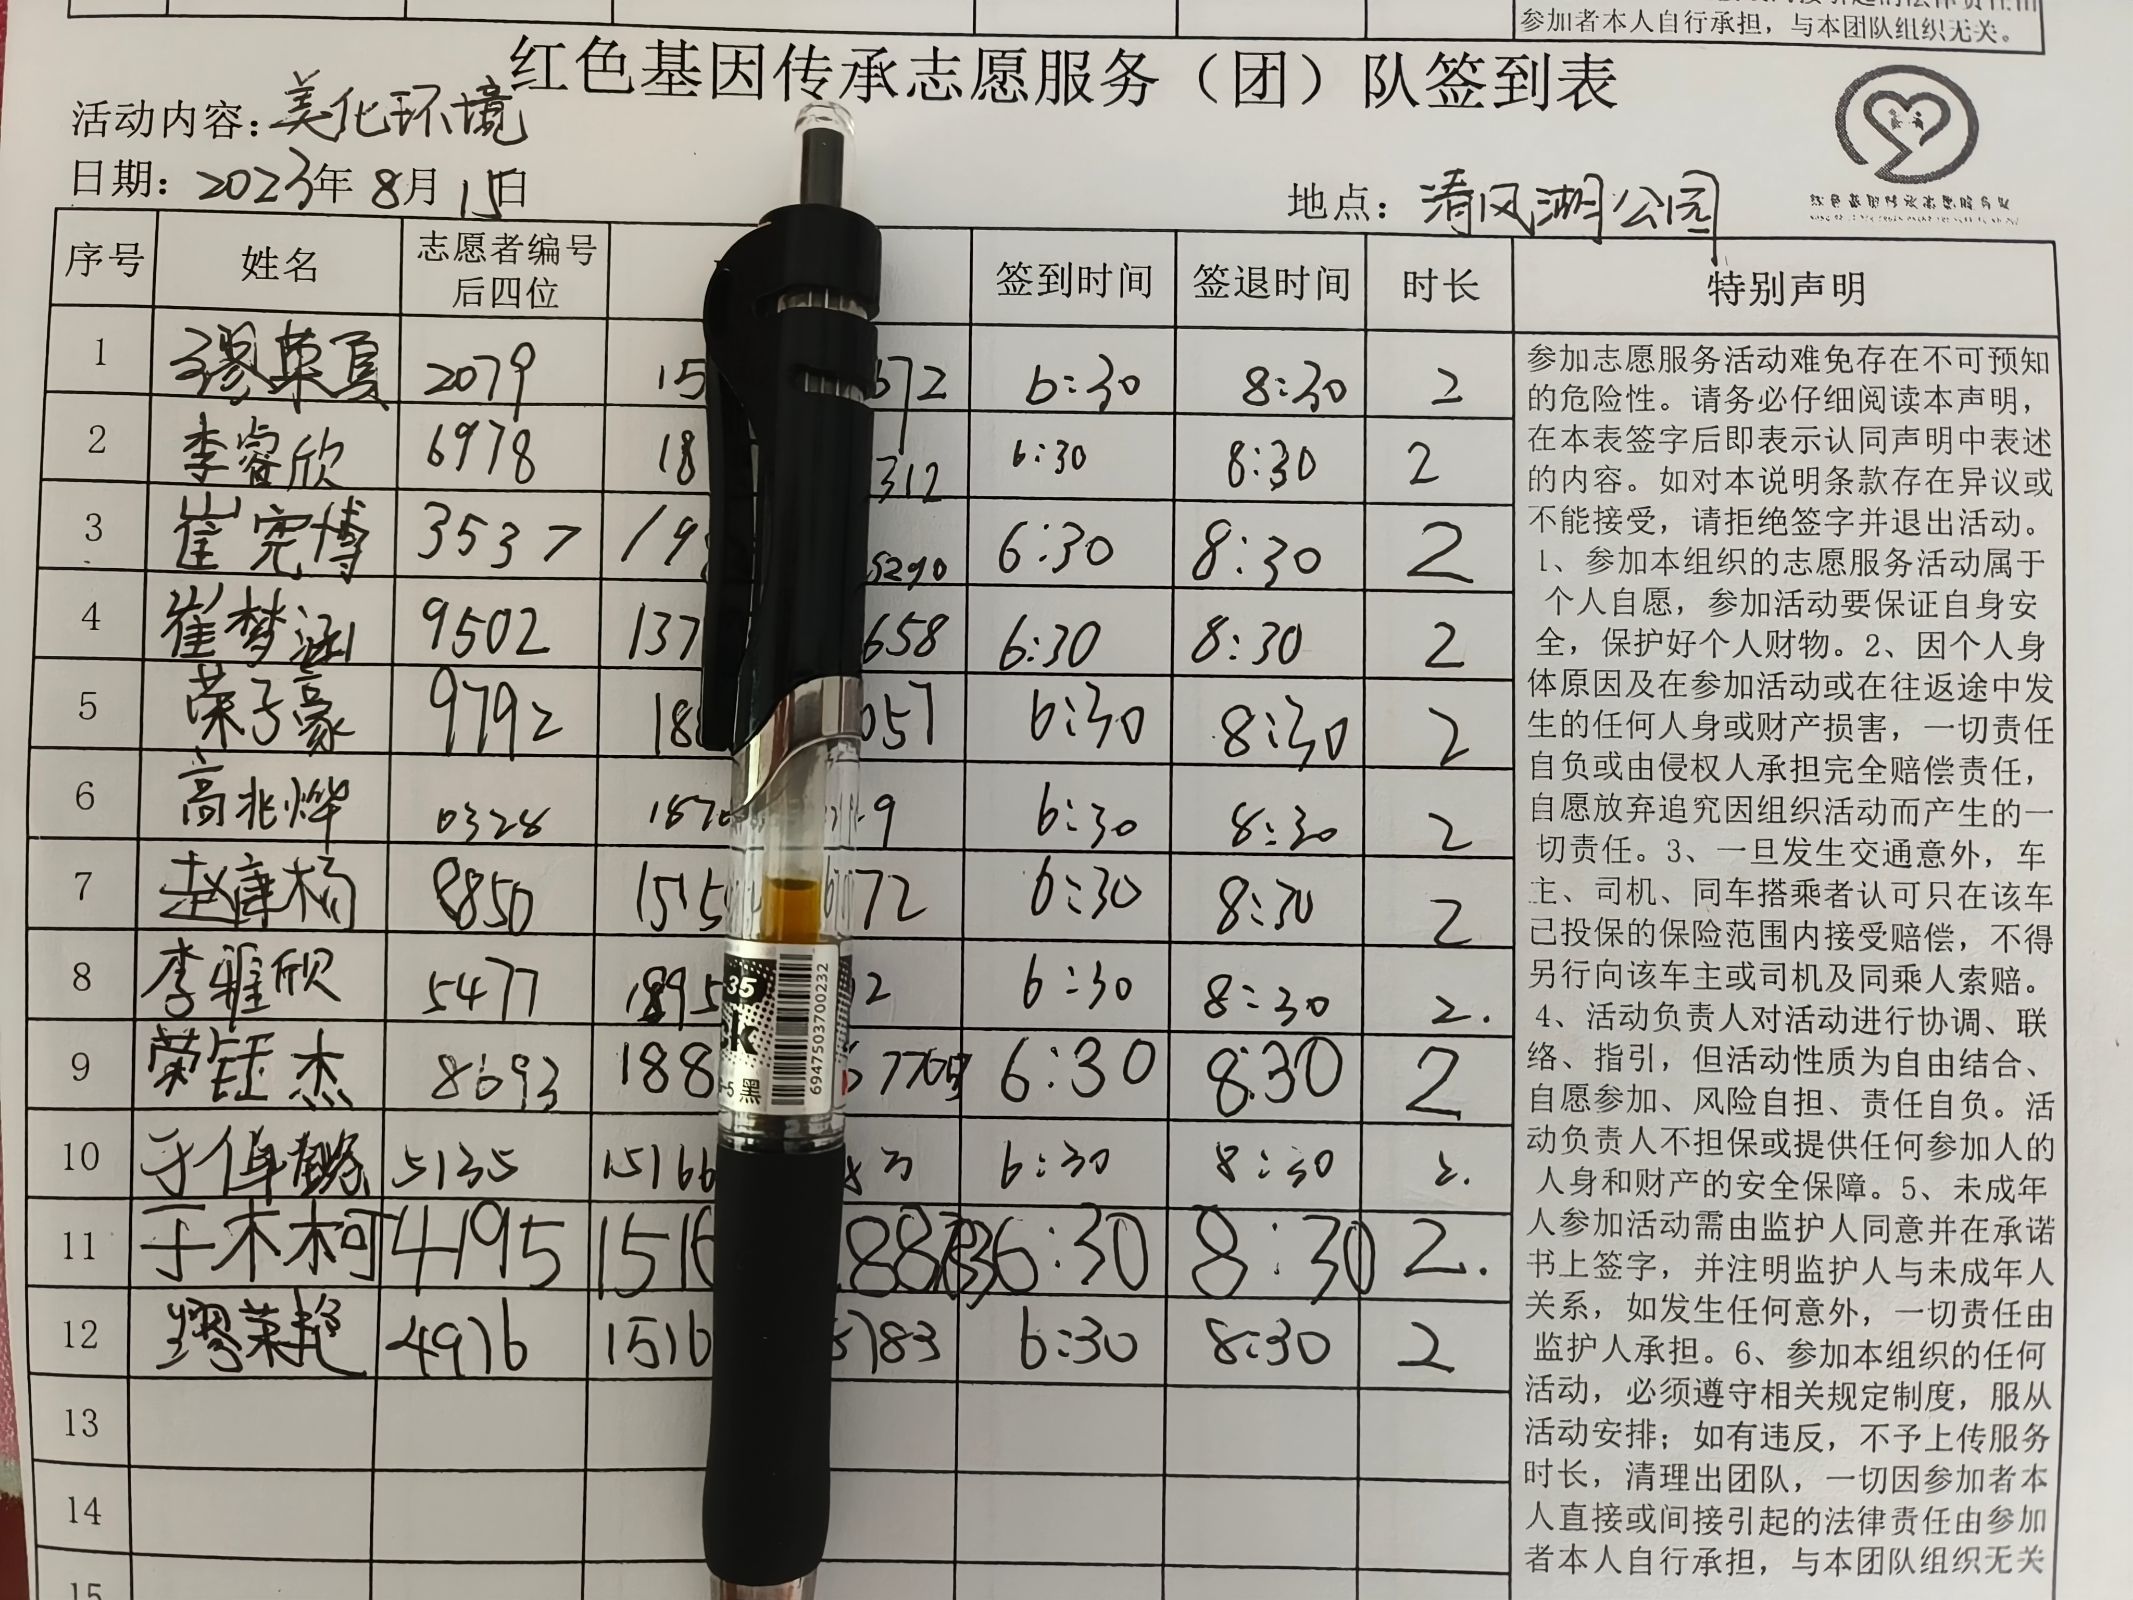 参加者本人自行承担，与本团队组织无关。
红色基因传承志愿服务（团）队签到表
活动内容：美化环境
日期：2023年8月15日
地点：清风湖公园
序号 姓名 志愿者编号后四位 签到时间 签退时间 时长 特别声明
1 缪荣夏 2079 15 672 6:30 8:30 2
2 李睿欣 6978 18 312 6:30 8:30 2
3 崔宪博 3537 19 5290 6:30 8:30 2
4 崔梦涵 9502 137 658 6:30 8:30 2
5 荣子豪 9792 188 057 6:30 8:30 2
6 高兆烨 0328 187 9 6:30 8:30 2
7 赵康杨 8850 1515 72 6:30 8:30 2
8 李雅欣 5477 1895 2 6:30 8:30 2.
9 荣钰杰 8693 188 6:30 8:30 2
10 于倬 5135 15166 6:30 8:30 2.
11 于木柯 4195 1516 6:30 8:30 2.
12 缪荣艳 4976 1516 783 6:30 8:30 2
13
14
15
参加志愿服务活动难免存在不可预知
的危险性。请务必仔细阅读本声明，
在本表签字后即表示认同声明中表述
的内容。如对本说明条款存在异议或
不能接受，请拒绝签字并退出活动。
1、参加本组织的志愿服务活动属于
个人自愿，参加活动要保证自身安
全，保护好个人财物。2、因个人身
体原因及在参加活动或在往返途中发
生的任何人身或财产损害，一切责任
自负或由侵权人承担完全赔偿责任，
自愿放弃追究因组织活动而产生的一
切责任。3、一旦发生交通意外，车
主、司机、同车搭乘者认可只在该车
已投保的保险范围内接受赔偿，不得
另行向该车主或司机及同乘人索赔。
4、活动负责人对活动进行协调、联
络、指引，但活动性质为自由结合、
自愿参加、风险自担、责任自负。活
动负责人不担保或提供任何参加人的
人身和财产的安全保障。5、未成年
人参加活动需由监护人同意并在承诺
书上签字，并注明监护人与未成年人
关系，如发生任何意外，一切责任由
监护人承担。6、参加本组织的任何
活动，必须遵守相关规定制度，服从
活动安排；如有违反，不予上传服务
时长，清理出团队，一切因参加者本
人直接或间接引起的法律责任由参加
者本人自行承担，与本团队组织无关
35
ck
-5 黑
6947503700232